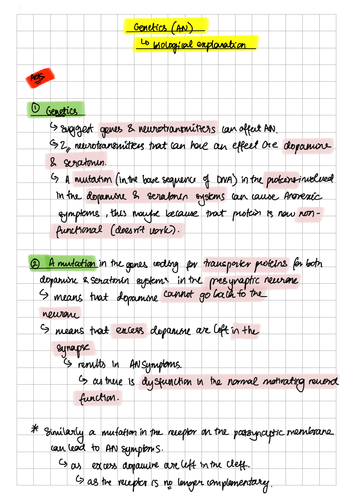 Genetics (AN)
↳ biological explanation
AO1
① Genetics
↳ suggest genes & neurotransmitters can affect AN.
↳ 2 neurotransmitters that can have an effect are dopamine
& seratonin.
↳ A mutation (in the base sequence of DNA) in the proteins involved
in the dopamine & seratonin systems can cause Anorexic
symptoms, this maybe because that protein is now non-
functional (doesn't work).
② A mutation in the genes coding for transporter proteins for both
dopamine & seratonin systems in the presynaptic neurone
↳ means that dopamine cannot go back to the
neurone
↳ means that excess dopamine are left in the
synapse
↳ results in AN symptoms.
↳ as there is dysfunction in the normal motivating reward
function.
* Similarly a mutation in the receptor on the postsynaptic membrane
can lead to AN symptoms.
↳ as excess dopamine are left in the cleft.
↳ as the receptor is no longer complementary.